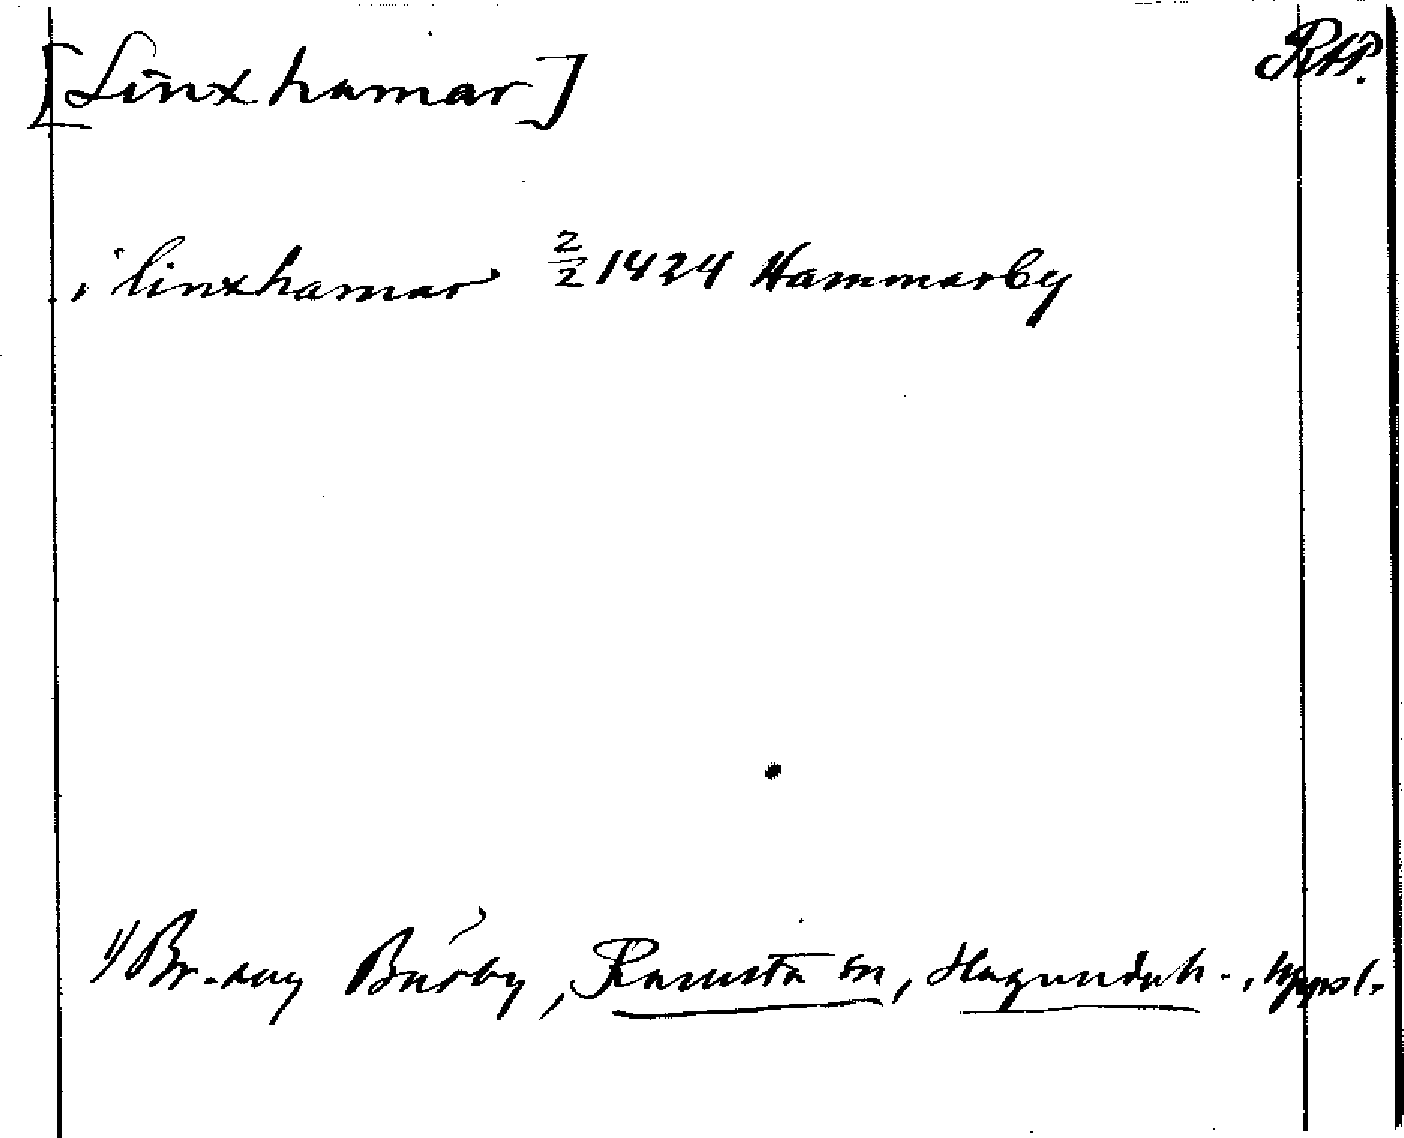 [Linxhamar] RAP.
i linxhamar 2/2 1424 Hammarby
1/ Br.-dag Burby, Ramsta sn, Hagunda h., Uppsl.